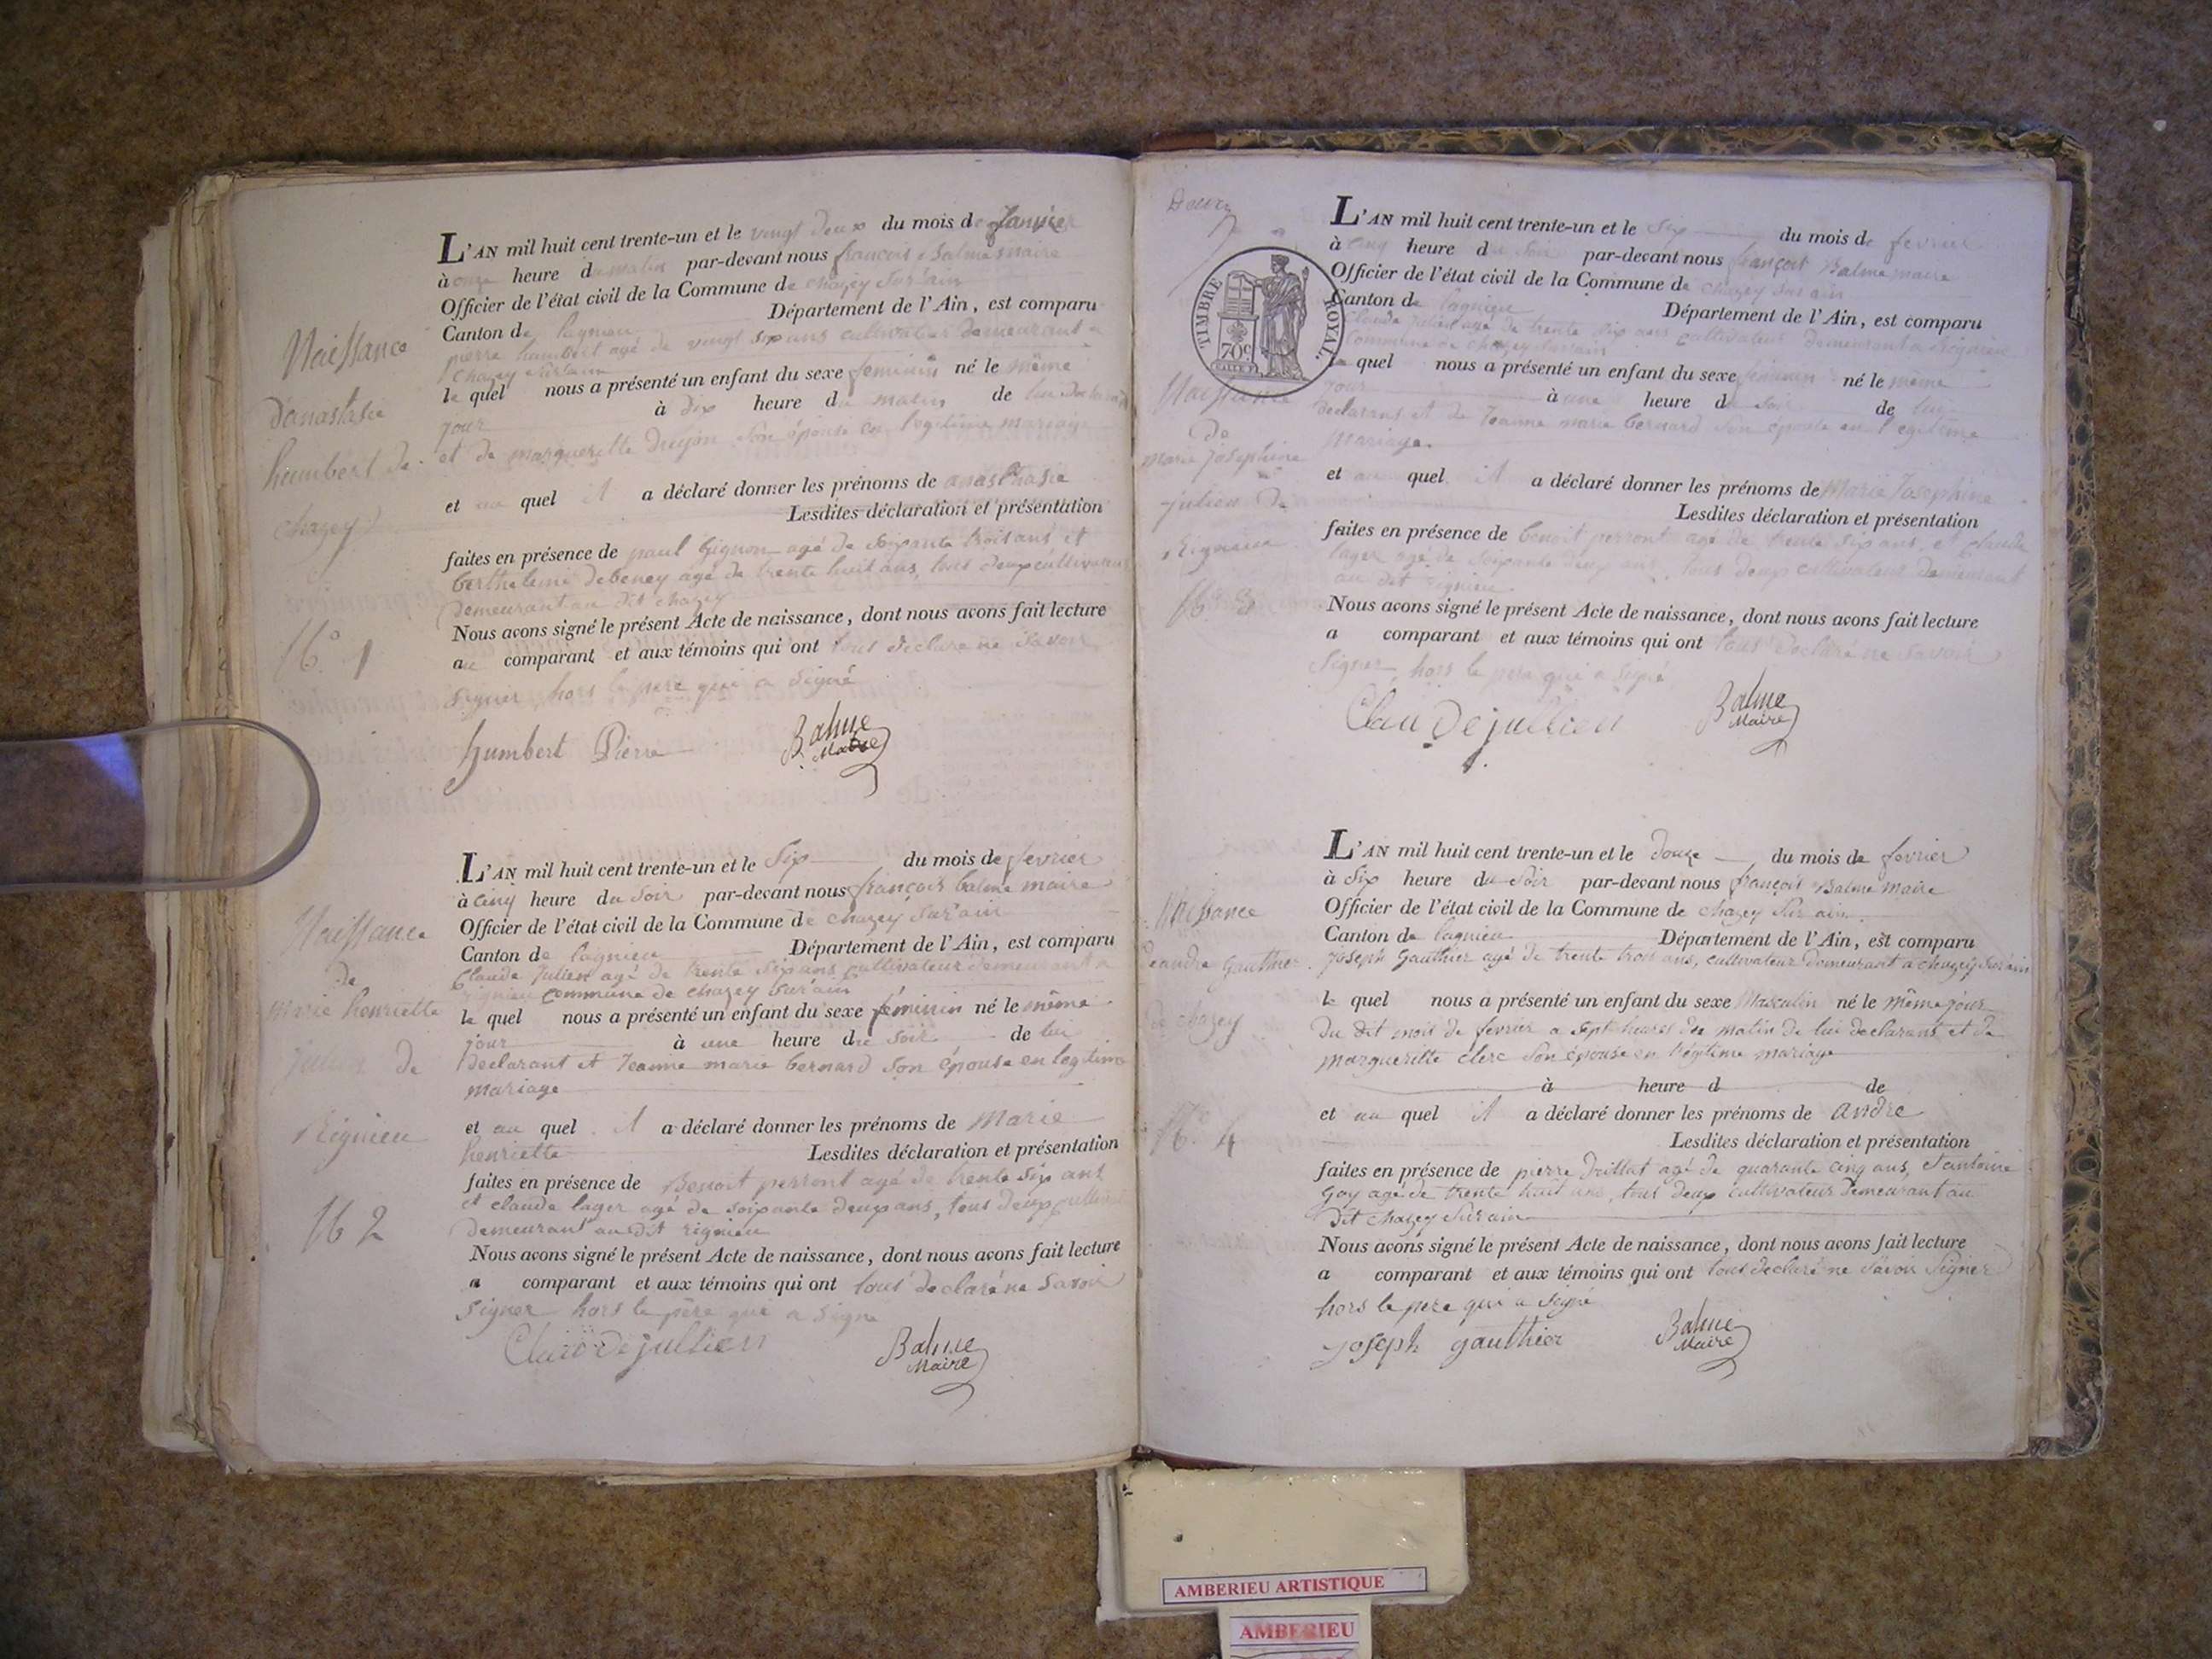 Naissance
d'anastasie
humbert de
chazey
N° 1
L'AN mil huit cent trente-un et le vingt deux du mois de Janvier
à onze heure du matin par-devant nous françois Balme maire
Officier de l'état civil de la Commune de chazey Sur ain
Canton de lagnieu Département de l'Ain, est comparu
pierre humbert agé de vingt six ans cultivateur demeurant a
chazey Sur ain
le quel nous a présenté un enfant du sexe feminin né le même
jour à dix heure du matin de lui declarant
et de margueritte son épouse en legitime mariage
et au quel il a déclaré donner les prénoms de anasthasie
Lesdites déclaration et présentation
faites en présence de paul gignon agé de soixante trois ans et
berthelemi debeney agé de trente huit ans, tous deux cultivateurs
demeurant au dit chazey
Nous avons signé le présent Acte de naissance, dont nous avons fait lecture
au comparant et aux témoins qui ont tous declaré ne savoir
signer hors le pere qui a signé
humbert Pierre Balme
Maire
Naissance
de
marie henriette
julien de
Rignieu
N° 2
L'AN mil huit cent trente-un et le Six du mois de fevrier
à cinq heure du soir par-devant nous françois balme maire
Officier de l'état civil de la Commune de chazey Sur ain
Canton de lagnieu Département de l'Ain, est comparu
Claude Julien agé de trente six ans cultivateur demeurant a
rignieu commune de chazey Sur ain
le quel nous a présenté un enfant du sexe féminin né le même
jour à une heure du soir de lui
declarant et Jeanne marie bernard son épouse en legitime
mariage
et au quel il a déclaré donner les prénoms de Marie
henriette Lesdites déclaration et présentation
faites en présence de Benoit perront agé de trente six ans
et claude lager agé de soixante deux ans, tous deux
demeurant au dit rignieu
Nous avons signé le présent Acte de naissance, dont nous avons fait lecture
a comparant et aux témoins qui ont tous declaré ne savoir
signer hors le père qui a signé
Claude jullien Balme
Maire
TIMBRE ROYAL.
70c
Naissance
de
marie Josephine
julien de
Rignieu
N° 3
L'AN mil huit cent trente-un et le Six du mois de fevrier
à cinq heure du soir par-devant nous françois Balme maire
Officier de l'état civil de la Commune de chazey Sur ain
Canton de lagnieu Département de l'Ain, est comparu
Claude Julien agé de trente six ans cultivateur demeurant a rignieu
Commune de chazey Sur ain
le quel nous a présenté un enfant du sexe feminin né le même
jour à une heure du soir de lui
declarant et de Jeanne marie bernard son épouse en legitime
mariage.
et au quel il a déclaré donner les prénoms de Marie Josephine
Lesdites déclaration et présentation
faites en présence de benoit perront agé de trente six ans, et claude
lager agé de soixante deux ans, tous deux cultivateurs demeurant
au dit rignieu
Nous avons signé le présent Acte de naissance, dont nous avons fait lecture
a comparant et aux témoins qui ont tous declaré ne savoir
signer, hors le pere qui a signé
Claude jullien Balme
Maire
Naissance
deandre gauthier
de chazey
N° 4
L'AN mil huit cent trente-un et le douze du mois de fevrier
à Six heure du Soir par-devant nous françois Balme Maire
Officier de l'état civil de la Commune de chazey Sur ain
Canton de lagnieu Département de l'Ain, est comparu
joseph Gauthier agé de trente trois ans, cultivateur demeurant a chazey sur ain
le quel nous a présenté un enfant du sexe Masculin né le même jour
du dit mois de fevrier a sept heures du matin de lui declarant et de
margueritte clerc son épouse en légitime mariage
à heure d de
et au quel il a déclaré donner les prénoms de andré
Lesdites déclaration et présentation
faites en présence de pierre Drillat agé de quarante cinq ans, et antoine
goy agé de trente huit ans, tous deux cultivateurs demeurant au
dit chazey Sur ain
Nous avons signé le présent Acte de naissance, dont nous avons fait lecture
a comparant et aux témoins qui ont tous declaré ne savoir signer
hors le pere qui a signé
joseph gauthier Balme
Maire
AMBERIEU ARTISTIQUE
AMBERIEU